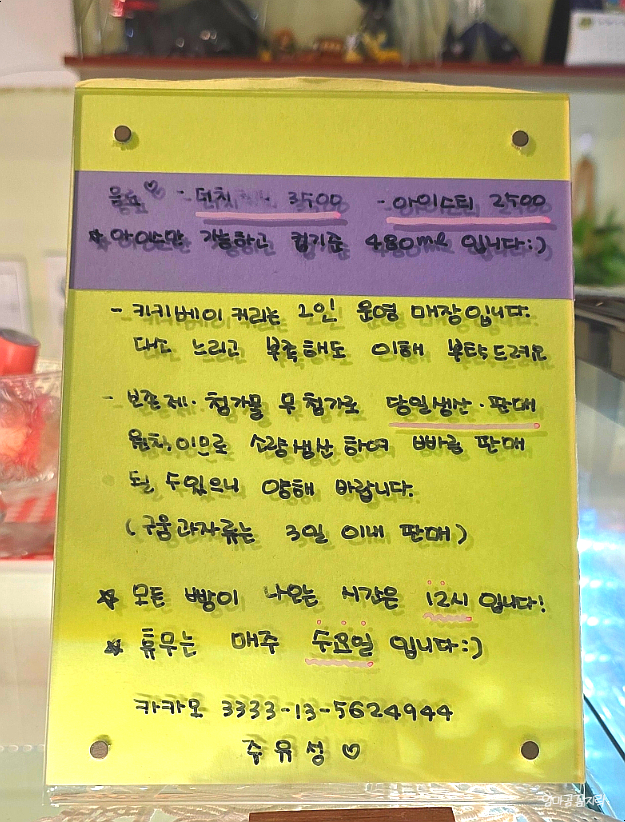 음료♡ - 더치 3500 - 아이스티 2500
☆ 아이스만 가능하고 컵기준 480ml 입니다:)
- 키키베이커리는 2인 운영 매장입니다.
다소 느리고 부족해도 이해 부탁드려요
- 보존제·첨가물 무첨가로 당일생산·판매
원칙이므로 소량생산하여 빠르 판매
될 수있으니 양해 바랍니다.
(구움과자류는 3일 이내 판매)
☆ 모든 빵이 나오는 시간은 12시 입니다!
☆ 휴무는 매주 수요일 입니다:)
카카오 3333-13-5624944
주유성 ♡